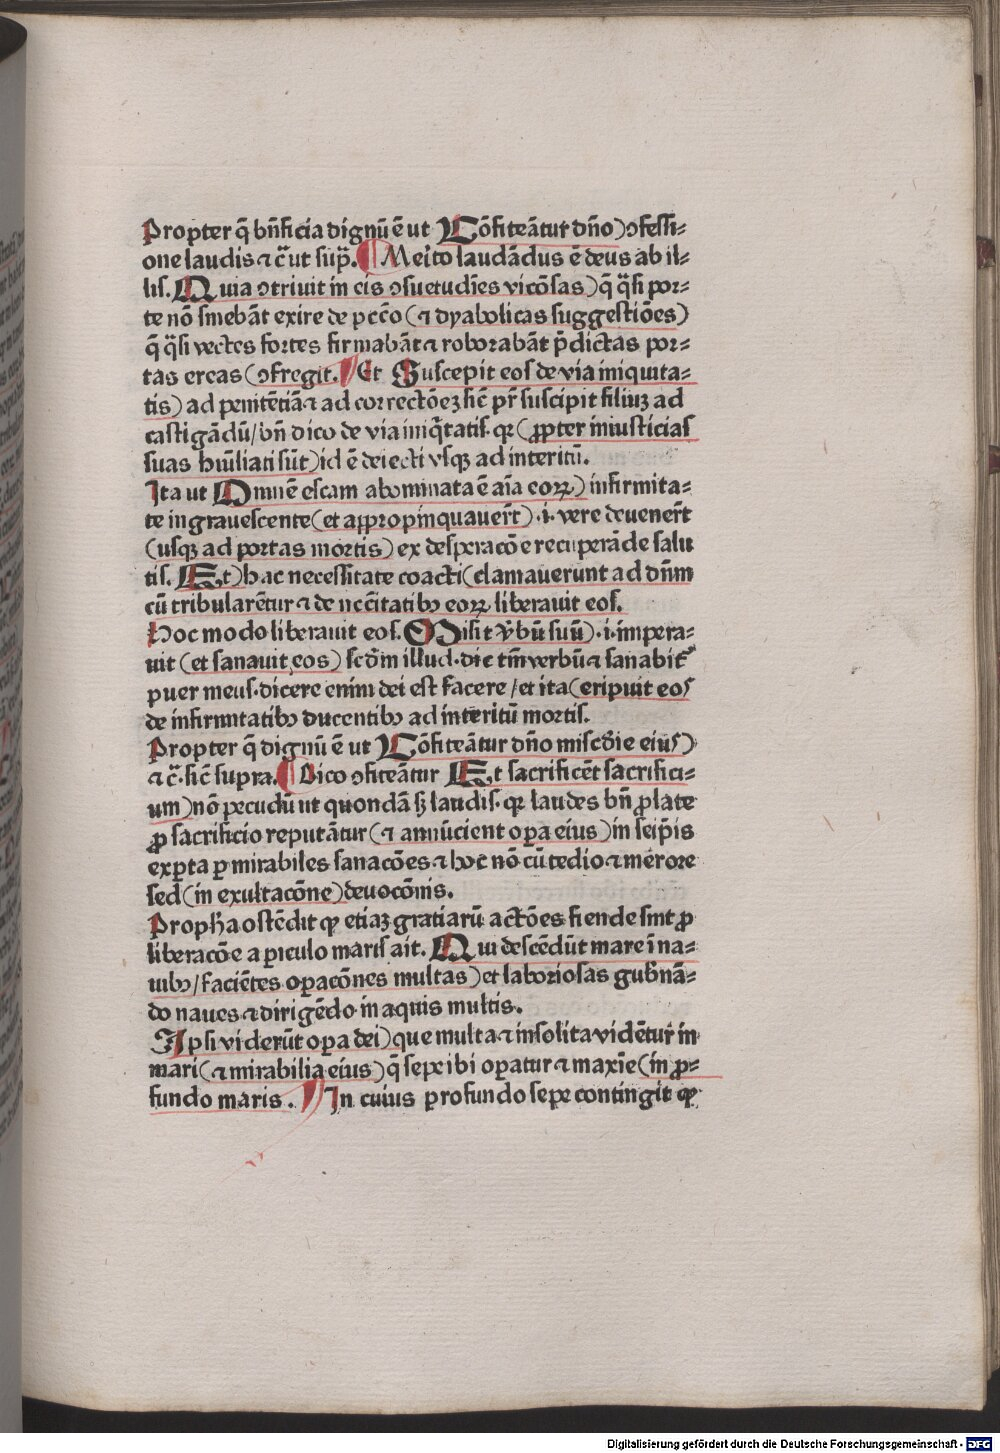 Propter q̄ bn̄ficia dignū ē ut Cōfiteāt᷑ dn̄o) ↄfessi⸗
one laudis ⁊ c̄ ut sup̄. Meito laudādus ē deus ab il⸗
lis. Quia ↄtriuit in eis ↄsuetudīes vicōsas) q̄ q̄si por⸗
te nō sinebāt exire de pccō (⁊ dyabolicas suggestiōes)
q̄ q̄si vectes fortes firmabāt ⁊ roborabāt p̄dictas por⸗
tas ereas (ↄfregit. Et Suscepit eos de via iniquita⸗
tis) ad penitētiā ⁊ ad correctōeꝫ sic̄ pr̄ suscipit filiuꝫ ad
castigādū/ bn̄ dico de via iniq̄tatis. qꝛ (ꝓpter iniusticias
suas humīliati sūt) id ē deiecti vsqꝫ ad interitū.
Ita ut Omnē escam abominata ē aīa eoꝝ) infirmita⸗
te ingrauescente (et appropinquauer̄t) .i. vere deuener̄t
(usqꝫ ad portas mortis) ex desperacōe recuperāde salu
tis. Et) hac necessitate coacti (clamauerunt ad dn̄m
cū tribularēt᷑ ⁊ de nccītatibꝰ eoꝝ liberauit eos.
Hoc modo liberauit eos. Misit v̄bū suū) .i. impera⸗
uit (et sanauit eos) scd̄m illud. dic tm̄ verbū ⁊ sanabit᷑
puer meus. dicere enim dei est facere / et ita (eripuit eos
de infirmitatibꝰ ducentibꝰ ad interitū mortis.
Propter q̄ dignū ē ut Cōfiteāt᷑ dn̄o miscd̄ie eius)
⁊ c̄. sic̄ supra. Dico ↄfiteāt᷑ Et sacrificēt sacrifici⸗
um) nō pecudū ut quondā sꝫ laudis. qꝛ laudes bn̄ ꝓlate
ꝓ sacrificio reputāt᷑ (⁊ annūcient oꝑa eius) in seip̄is
exꝑta ꝑ mirabiles sanacōes ⁊ hoc nō cū tedio ⁊ merore
sed (in exultacōne) deuocōnis.
Propha ostēdit qꝫ etiaꝫ gratiarū actōes fiende sint ꝓ
liberacōe a ꝑiculo maris ait. Qui descēdūt mare ī na⸗
uibꝰ / faciētes oꝑacōnes multas) et laboriosas gub̄nā⸗
do naues ⁊ dirigēdo in aquis multis.
Ipsi viderūt oꝑa dei) que multa ⁊ insolita vidēt᷑ in
mari (⁊ mirabilia eius) q̄ sepe ibi oꝑatur ⁊ maxīe (in ꝓ⸗
fundo maris. In cuius profundo sepe contingit qꝫ
Digitalisierung gefördert durch die Deutsche Forschungsgemeinschaft - DFG